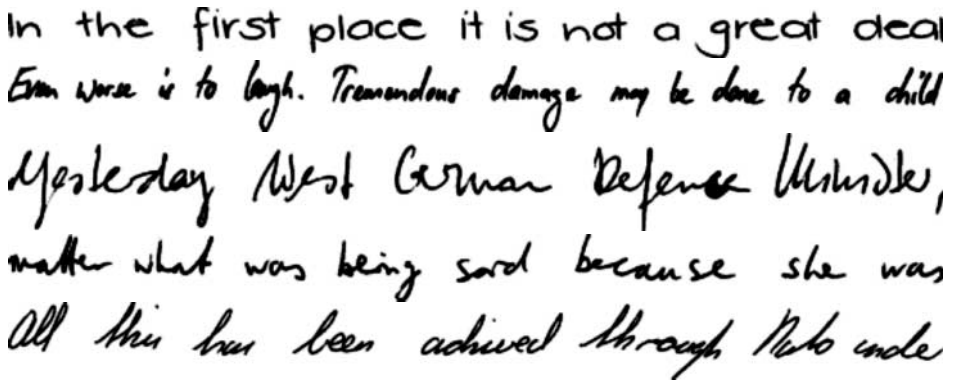 In the first place it is not a great deal
Even worse is to laugh. Tremendous damage may be done to a child
Yesterday West German Defence Minister,
matter what was being said because she was
All this has been achieved through Nato unde